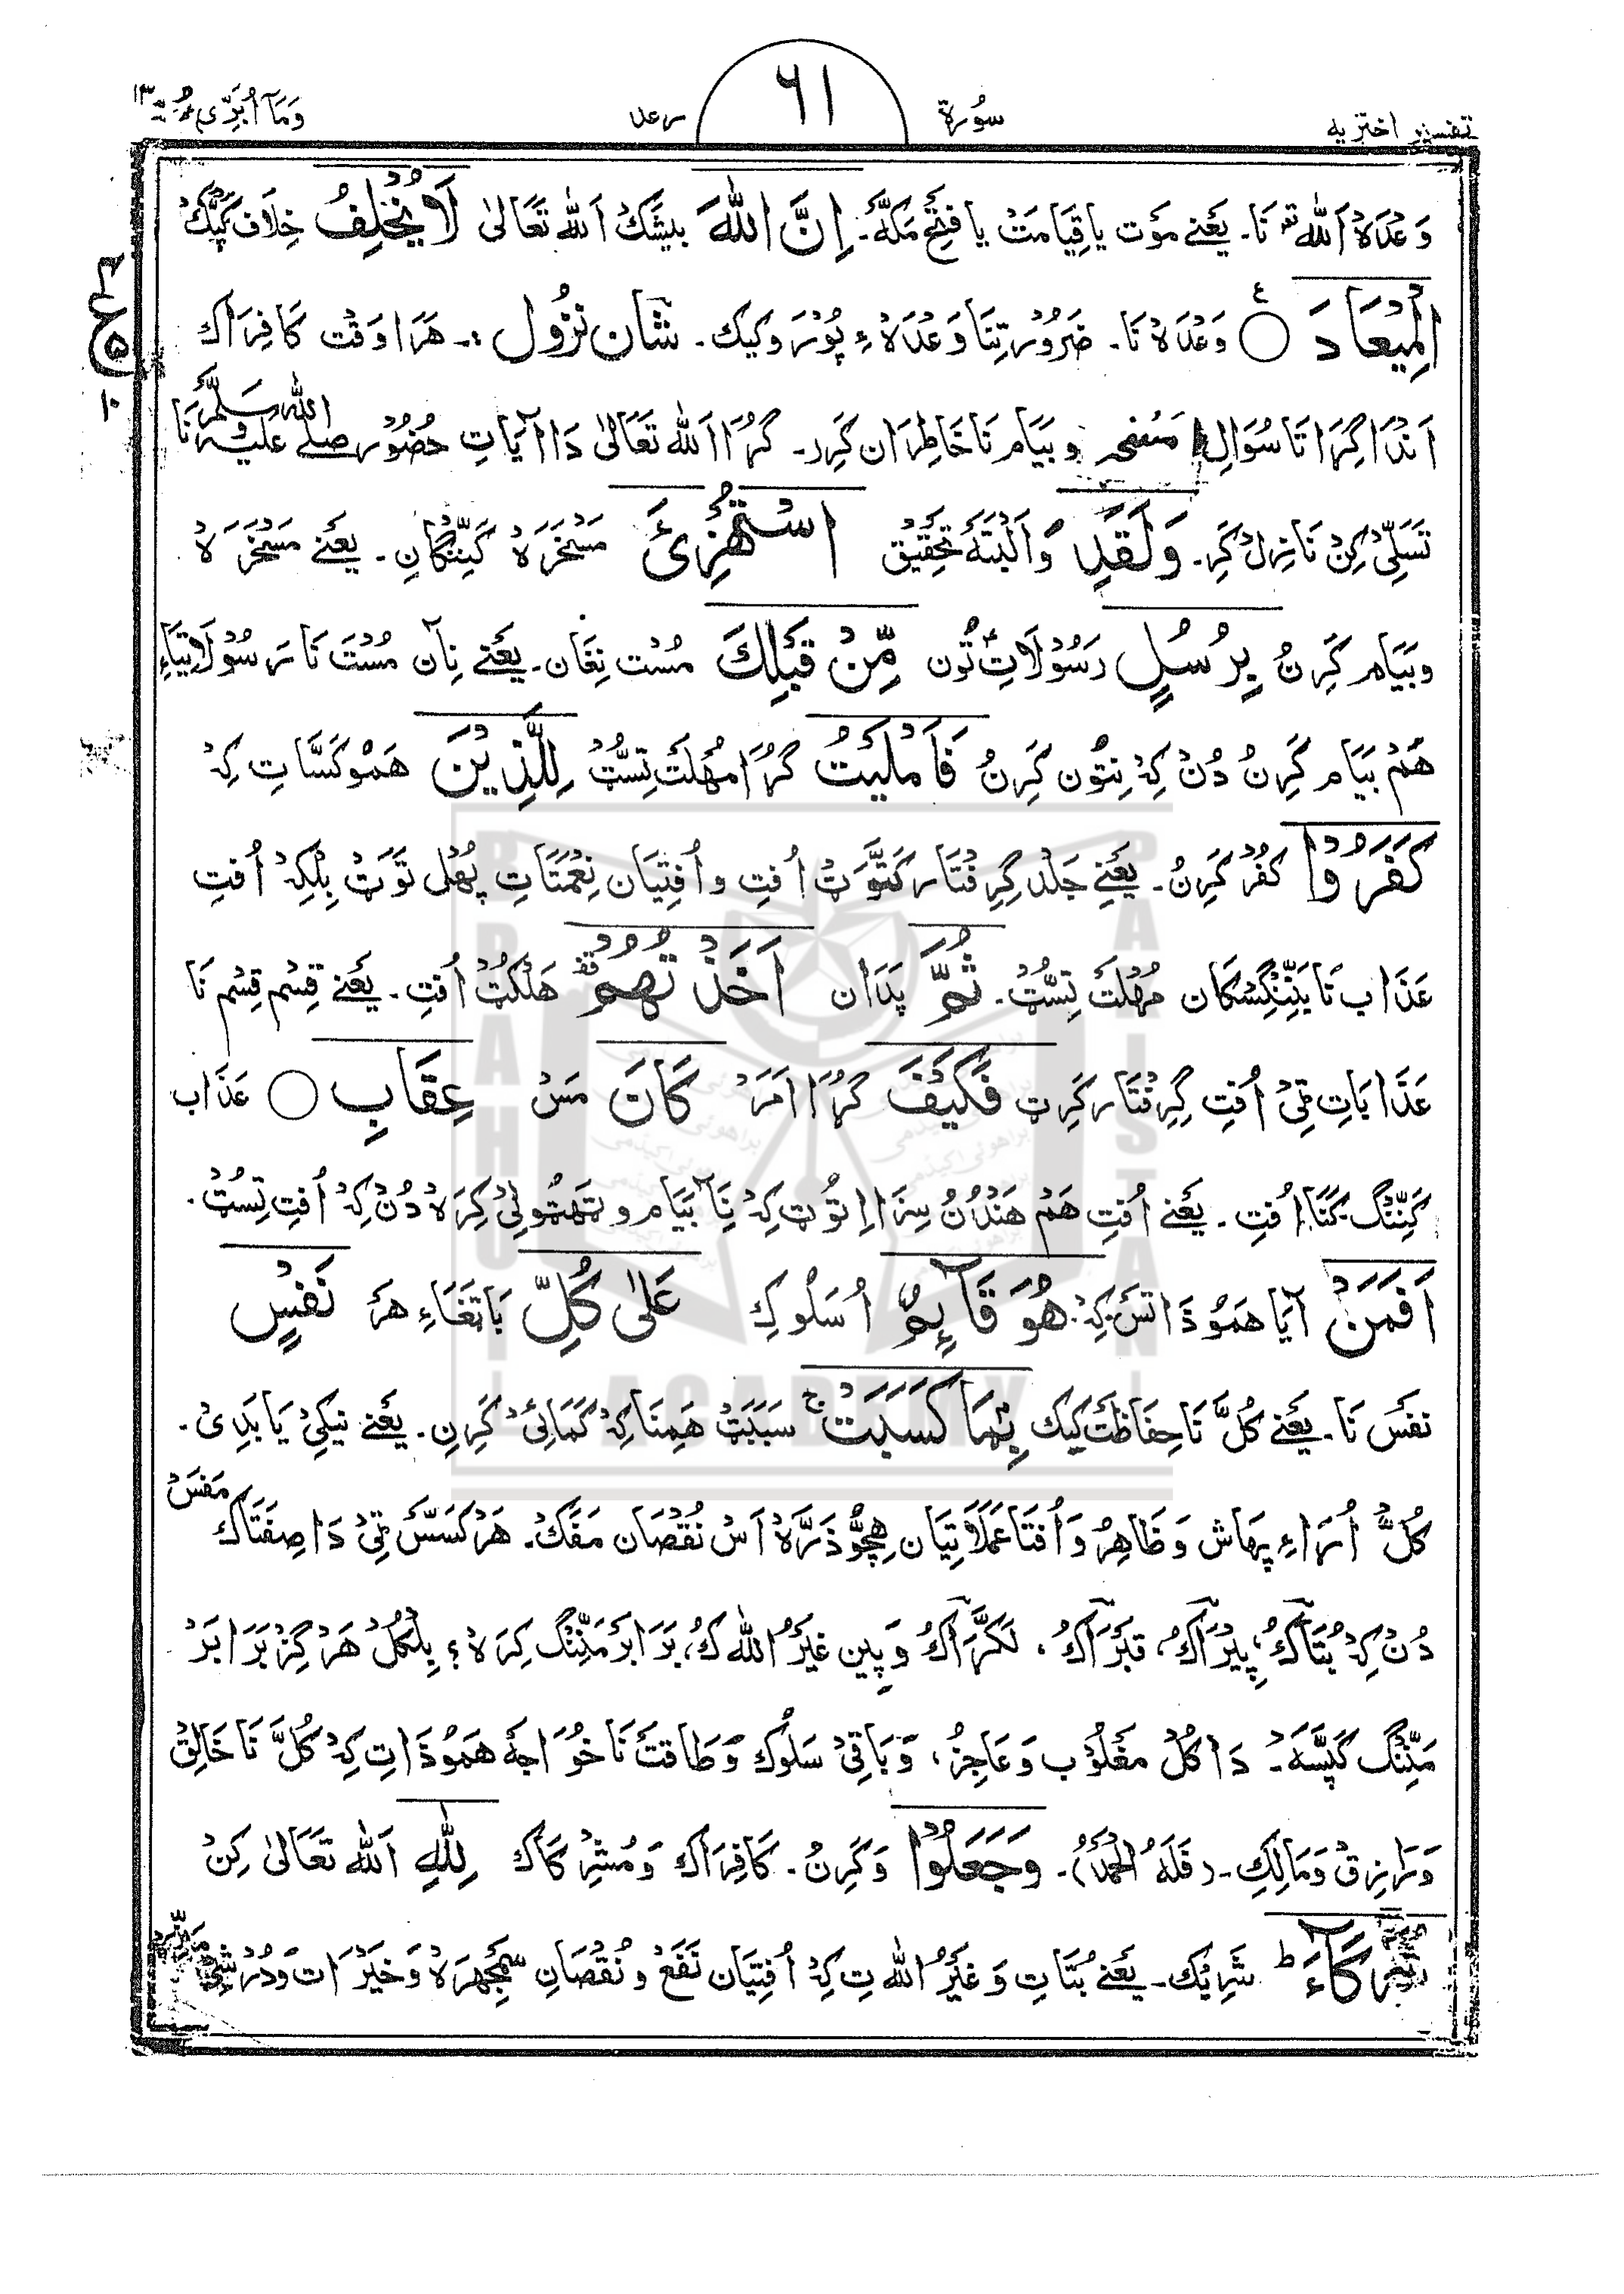 تفسیر اختریه سُورة ٦١ رعد وَمَآ اُبَرِّئُ ١٣
وَعْدَهٔ اَللّٰه تَعَ نَا۔ یَعْنے مَوْت یا قِیَامَتْ یا فَتْحِ مَکَّه۔ اِنَّ اللّٰهَ بیشَکْ اَللّٰه تَعَالیٰ لَا یُخْلِفُ خِلَاف کَپَّکْ
الْمِیْعَادَ ○ وَعْدَهٔ نَا۔ ضَرُوْر تِنَا وَعْدَهءِ پُوْرَوکیک۔ شَان نزُول :۔ هَرَا وَقْت کَافِرَاک
اَنْدَا گِرَاتَا سُوَالِ وبَیَام نَا خَاطِرَان کَرِر۔ گُرَا اَللّٰه تَعَالیٰ دَا آیَاتِ حُضُوْر صلے اللّٰه علیه وسلم نَا
تَسَلِّیْ کِنْ نَازِل کَرِ۔ وَلَقَدِ وَاَلْبَتَّه تَحْقِیْق اسْتُهْزِئَ مَسْخَرَهٔ کَنِّنْگانِ۔ یعنے مَسْخَرَهٔ
وبَیَام کَرِنُ بِرُسُلٍ رَسُوْلَاتِ تُون مِّنْ قَبْلِکَ مُسْت نِغَان۔ یَعْنے نِآن مُسْتَ نَا رَسُوْلَاتِیَاءِ
هَمْ بَیَام کَرِنُ دُنْ کِهْ نِتُون کَرِنُ فَاَمْلَیْتُ گُرَا مُهْلَتْ تِسُّتْ لِلَّذِیْنَ هَمُوکَسَّاتِ کِهْ
کَفَرُوْا کُفْر کَرِنُ۔ یَعْنِے جَلْد گِرِفْتَار کَتَّوَٹ اُفتِ و اُفْتِیَان نِعْمَتَاتِ پُهْل تَوَٹ بِلْکِهْ اُفتِ
عَذَاب نَا یَتِنِّنْگِسْکَان مُهْلَتْ تِسُّتْ۔ ثُمَّ پَدَان اَخَذْتُهُمْ هَلْکُتْ اُفتِ۔ یَعْنے قِسْم قِسْم نَا
عَذَابَاتِ تِیْ اُفتِ گِرِفْتَار کَرِٹ فَکَیْفَ گُرَا اَمَرْ کَانَ مَسْ عِقَابِ ○ عَذَاب
کَنِّنْگ کَنَا اُفتِ۔ یَعْنے اُفتِ هَمْ هَنْدُنُ سِزَا اِتُوْٹ کِهْ نَا بَیَام و تَهْمَتُولِیْ کِرَهٔ دُنْ کِهْ اُفتِ تِسُّتْ۔
اَفَمَنْ آیَا هَمُوْ ذَاتَسْ کِهْ هُوَ قَآئِمٌ اُ سَلُوکِ عَلیٰ کُلِّ بَاتَغَاءِ هَرَ نَفْسٍ
نفَس نَا۔ یعنے کُلَّ نَا حِفَاظَت کیک بِمَا کَسَبَتْ سَبَبَتْ هَمِنَا کِهْ کَمَائِیْ کَرِنِ۔ یَعْنے نیکیْ یَا بَدِیْ۔
کُلَّ اُرَاءِ پهَاش وَ ظَاهِرُ وَ اُفْتَا عَمَلَاتِیَان هِچُّوْ ذَرَّهٔ اَسْ نُقْصَان مَفَکْ۔ هَرْ کَسَسْ تِیْ دَا صِفَتَاکْ مَفَسْ
دُنْ کِهْ بُتَآکُ، پِیْرَآکُ، قبَرَآکُ، لَکَّرَآکُ وَپِین غَیْرُ اللّٰه کُ، بَرَابَرَ مَنِّنْگ کِرَهٔ؟ بِلْکُلْ هَرْ گِزْ بَرَابَرْ
مَنِّنْگ کَپَسَّه۔ دَا کُلْ مغْلُوْب وَ عَاجِزُ، وَبَاقِیْ سَلُوک وَطَاقَتْ نَا خُوَاجَهٔ هَمُوْذَاتِ کِهْ کُلَّ نَا خَالِقْ
وَرَازِقْ وَمَالِکِ۔ (فَلَهُ الْحَمْدُ)۔ وَجَعَلُوْا وَکَرِنُ۔ کَافِرَاک وَمُشْرِکَاک لِلّٰهِ اَللّٰه تعَالیٰ کِنْ
شُرَکَآءَ ط شَرِیْک۔ یعنے بُتَاتِ وَ غَیْرُ اللّٰه تِ کِهْ اُفْتِیَان نَفْعْ و نُقْصَانِ سَمْجِهرَهٔ وَخَیْرَات وَدُرْشَیْ